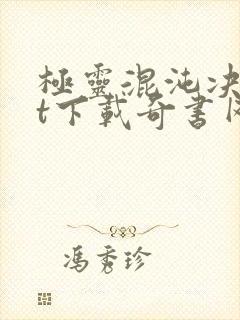 極靈混沌決
t下載奇書
馮秀珍